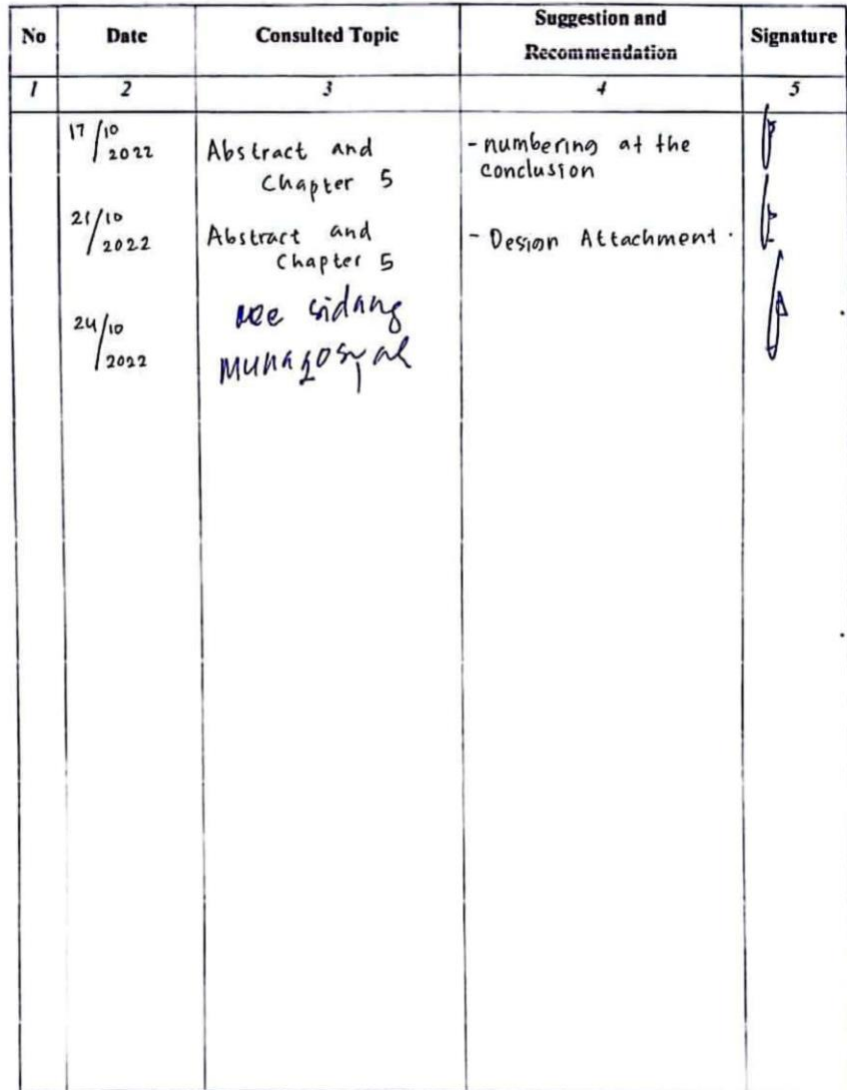 No Date Consulted Topic Suggestion and Recommendation Signature
1 2 3 4 5
17/10 2022 Abstract and Chapter 5 - numbering at the conclusion
21/10 2022 Abstract and Chapter 5 - Design Attachment.
24/10 2022 sidang munaqosyah